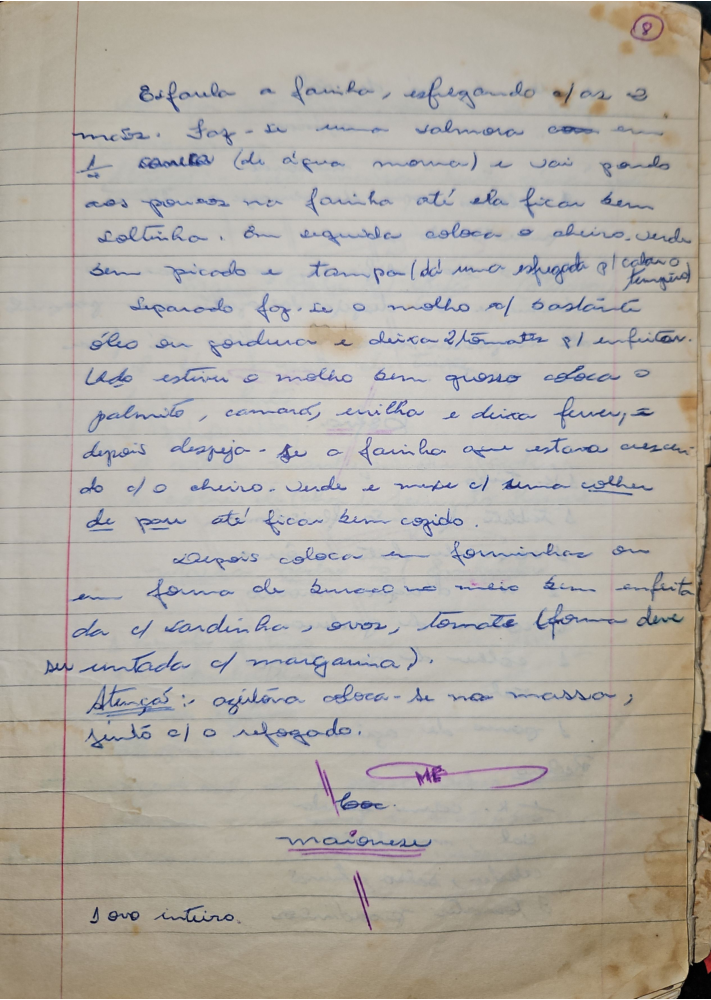 8
Esfarela a farinha, esfregando c/ as 2
mãos. Faz-se uma salmora em
1 caneca (de água morna) e vai pondo
aos poucos na farinha até ela ficar bem
soltinha. Em seguida coloca o cheiro-verde
bem picado e tampa (dá uma esfregada p/ calar o
tempero)
Separado faz-se o molho c/ bastante
óleo ou gordura e deixa 2 tomates p/ enfeitar.
estiver o molho bem grosso coloca o
palmito, camarão, ervilha e deixa ferver, e
depois despeja-se a farinha que estava crescen-
do c/ o cheiro-verde e mexe c/ uma colher
de pau até ficar bem cozido.
Depois coloca em forminhas ou
em forma de buraco no meio bem enfeita
da c/ sardinha, ovos, tomate (forma deve
ser untada c/ margarina).
Atenção:- azeitona coloca-se na massa,
junto c/ o refogado.
ME
maionese
1 ovo inteiro.